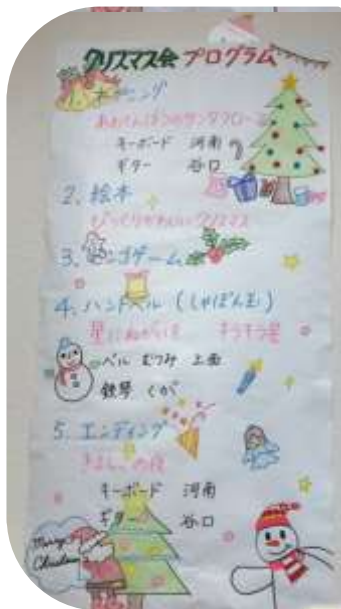 クリスマス会 プログラム
オープニング
あわてんぼうのサンタクロース
キーボード 河南
ギター 谷口
2. 絵本
びっくりかわいいクリスマス
3. ビンゴゲーム
4. ハンドベル (しゃぼん玉)
星にねがいを キラキラ星
ベル むつみ 上面
鉄琴 くが
5. エンディング
きよしこの夜
キーボード 河南
ギター 谷口
Merry
Christmas